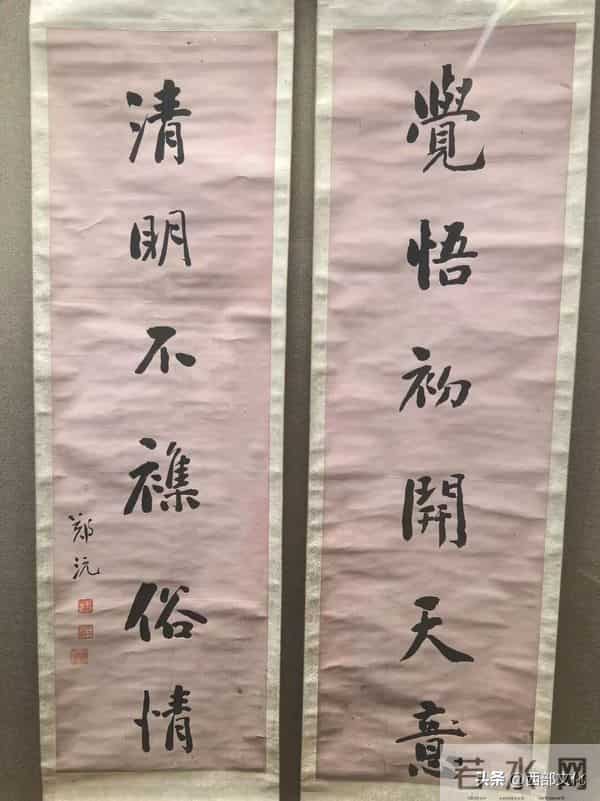 覺悟初開天意
清明不襍俗情
鄭沅
若水网
头条 @西部文化